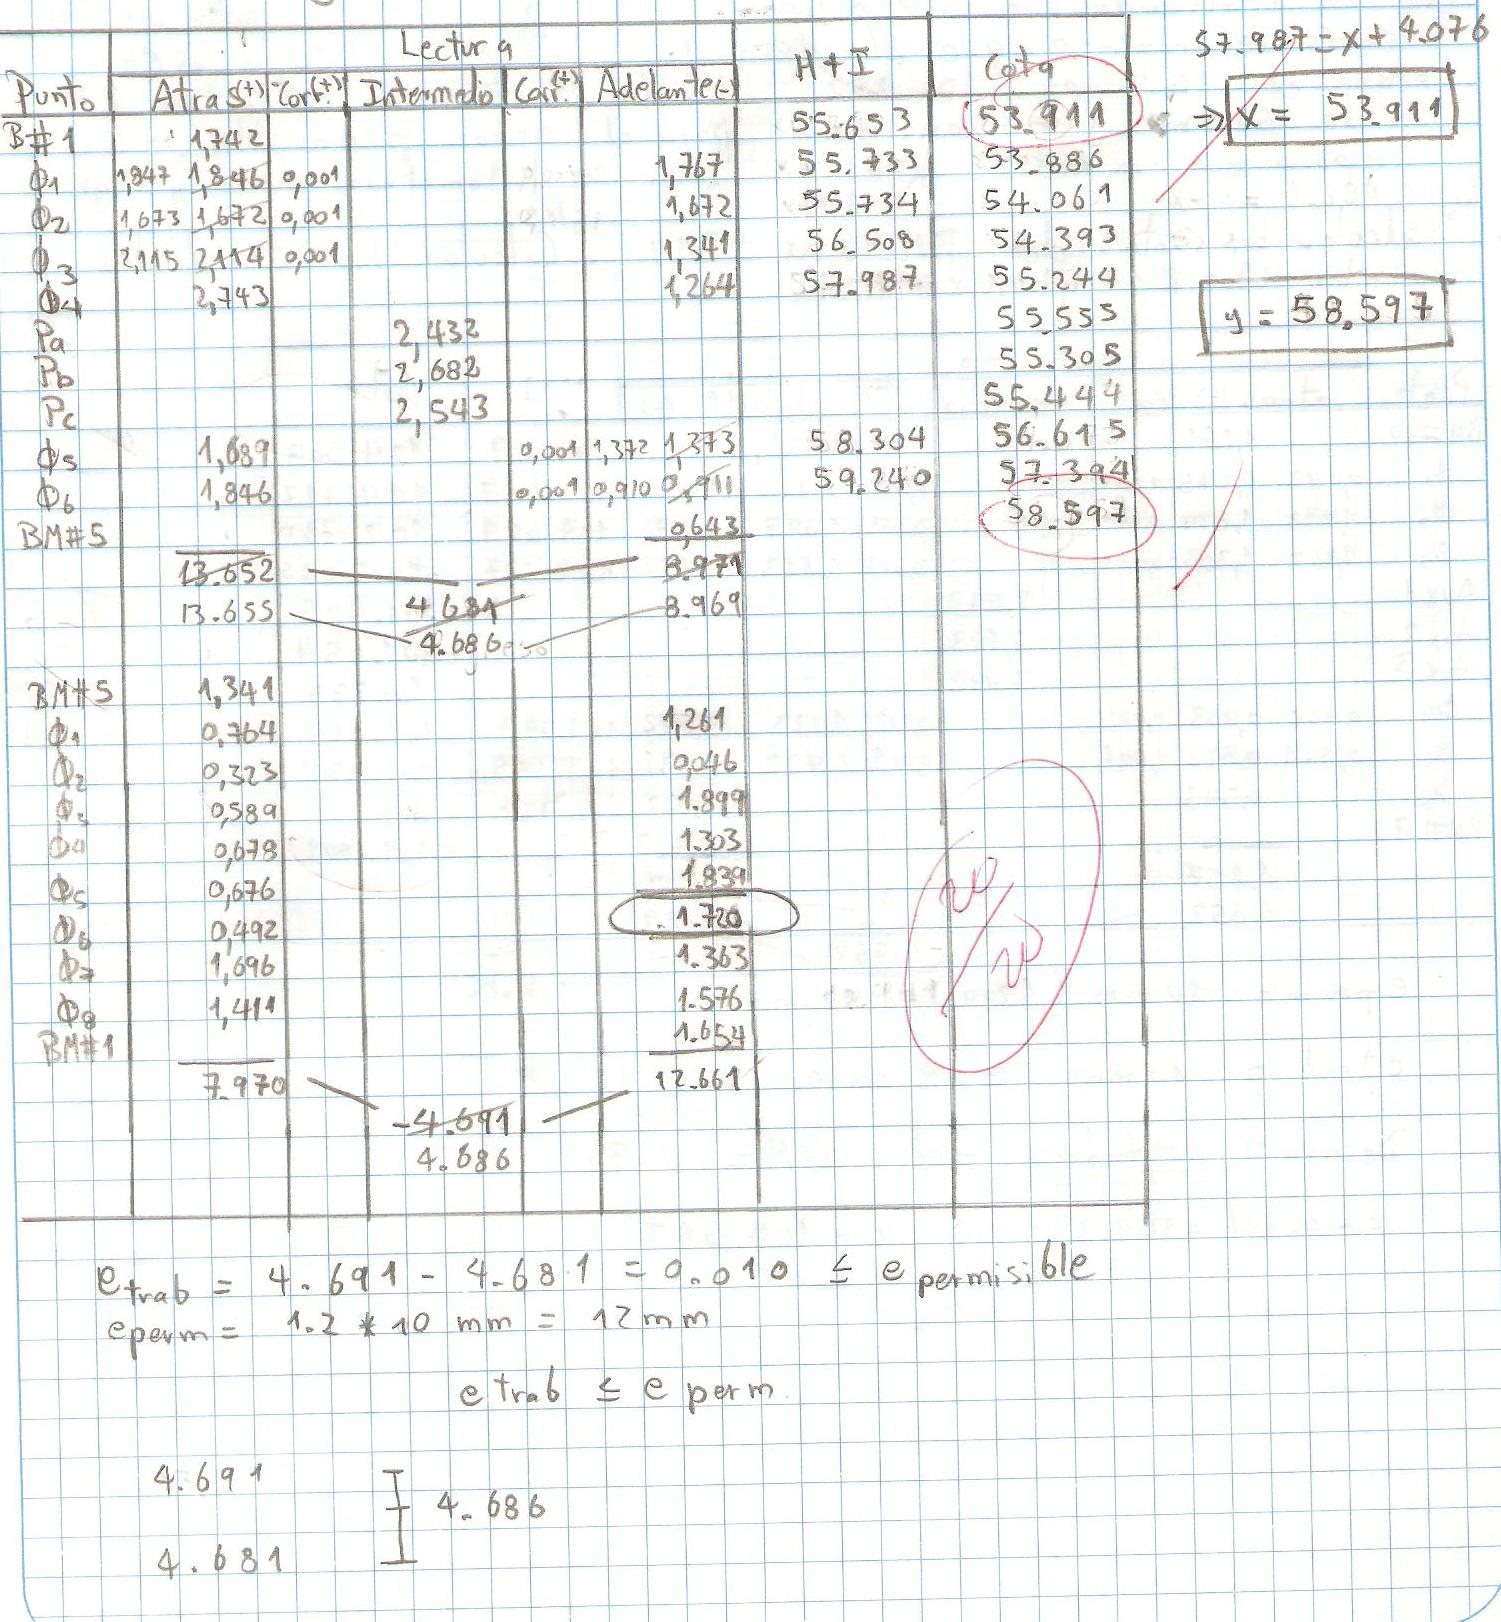 Lectura
Punto Atras(+) Corr.(+) Intermedio Corr.(+) Adelante(-) H+I Cota
B#1 1,742 55.653 53.911
Φ1 1,847 1,846 0,001 1,767 55.733 53.886
Φ2 1,673 1,672 0,001 1,672 55.734 54.061
Φ3 2,115 2,114 0,001 1,341 56.508 54.393
Φ4 2,743 1,264 57.987 55.244
Pa 2,432 55.555
Pb 2,682 55.305
Pc 2,543 55.444
Φ5 1,689 0,001 1,372 1,373 58.304 56.615
Φ6 1,846 0,001 0,910 0,911 59.240 57.394
BM#5 0,643 58.597
13.652 8.971
13.655 4.681 8.969
4.686
57.987 = x + 4.076
⇒ x = 53.911
y = 58,597
BM#5 1,341
Φ1 0,764 1,261
Φ2 0,323 0,046
Φ3 0,589 1.899
Φ4 0,678 1.303
Φ5 0,676 1.839
Φ6 0,492 1.720
Φ7 1,696 1.363
Φ8 1,411 1.576
BM#1 1.654
7.970 12.661
-4.691
4.686
20/20
e trab = 4.691 - 4.681 = 0.010 ≤ e permisible
e perm = 1.2 * 10 mm = 12 mm
e trab ≤ e perm
4.691
4.686
4.681